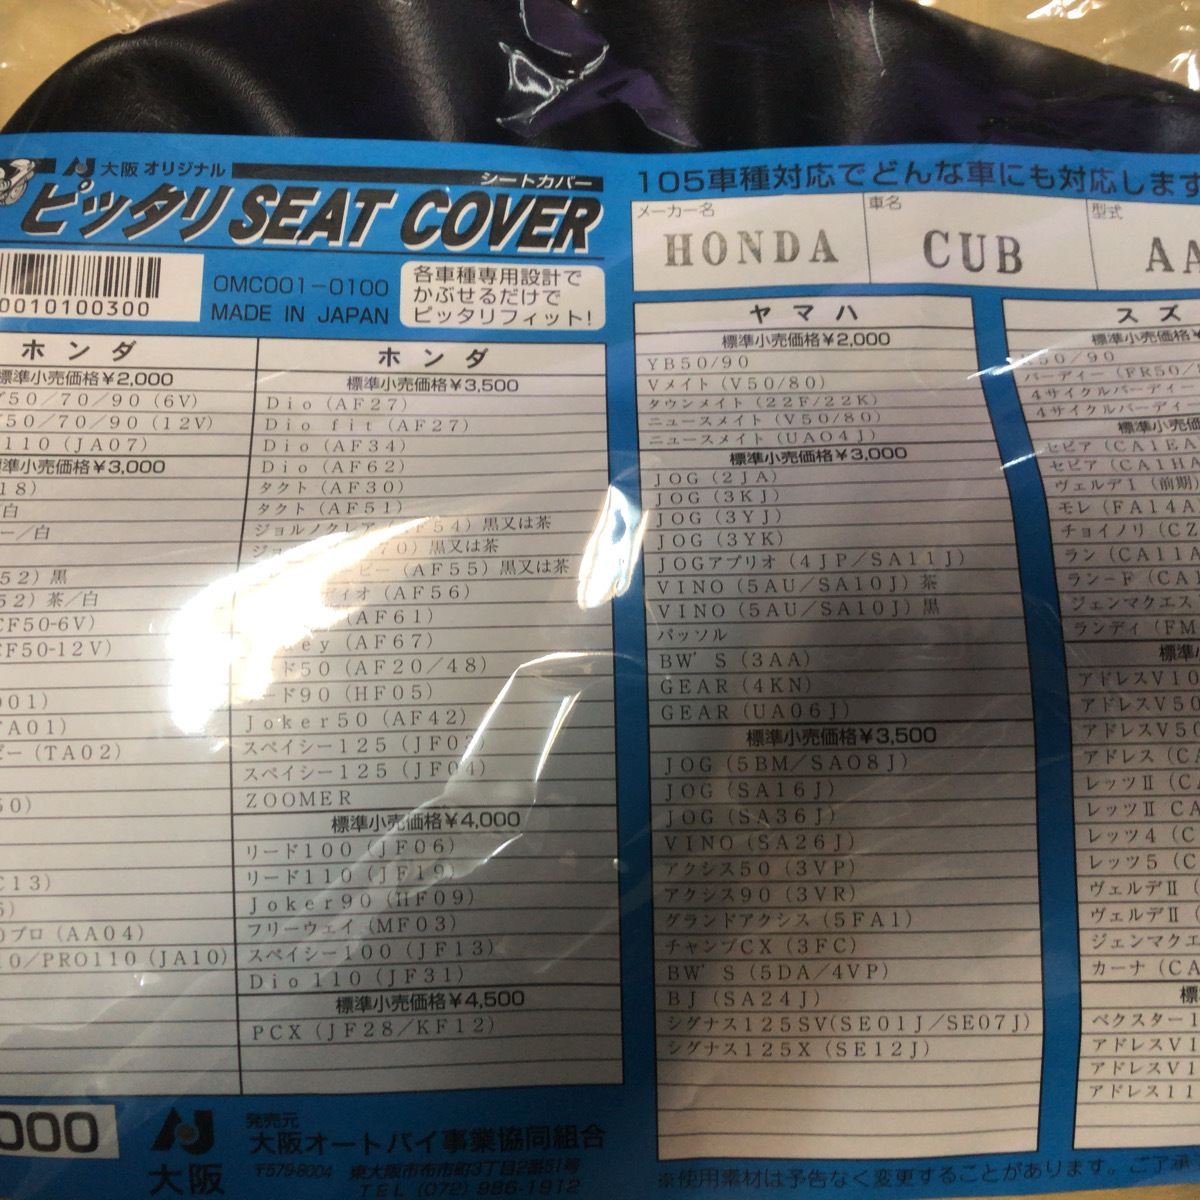 大阪 オリジナル
シートカバー
ピッタリ SEAT COVER
0010100300
OMC001-0100
MADE IN JAPAN
各車種専用設計で
かぶせるだけで
ピッタリフィット!
105車種対応でどんな車にも対応します
メーカー名
HONDA
車名
CUB
型式
AA
ホンダ
標準小売価格¥2,000
50/70/90 (6V)
50/70/90 (12V)
110 (JA07)
標準小売価格¥3,000
18)
/白
ー/白
52) 黒
52) 茶/白
CF50-6V)
CF50-12V)
001)
TA01)
ー (TA02)
50)
C13)
5)
0プロ (AA04)
10/PRO110 (JA10)
ホンダ
標準小売価格¥3,500
Dio (AF27)
Dio fit (AF27)
Dio (AF34)
Dio (AF62)
タクト (AF30)
タクト (AF51)
ジョルノクレア (AF54) 黒又は茶
70) 黒又は茶
ビー (AF55) 黒又は茶
ディオ (AF56)
(AF61)
key (AF67)
ド50 (AF20/48)
ード90 (HF05)
Joker50 (AF42)
スペイシー125 (JF03)
スペイシー125 (JF04)
ZOOMER
標準小売価格¥4,000
リード100 (JF06)
リード110 (JF19)
Joker90 (HF09)
フリーウェイ (MF03)
スペイシー100 (JF13)
Dio110 (JF31)
標準小売価格¥4,500
PCX (JF28/KF12)
ヤマハ
標準小売価格¥2,000
YB50/90
Vメイト (V50/80)
タウンメイト (22F/22K)
ニュースメイト (V50/80)
ニュースメイト (UA04J)
標準小売価格¥3,000
JOG (2JA)
JOG (3KJ)
JOG (3YJ)
JOG (3YK)
JOGアプリオ (4JP/SA11J)
VINO (5AU/SA10J) 茶
VINO (5AU/SA10J) 黒
パッソル
BW'S (3AA)
GEAR (4KN)
GEAR (UA06J)
標準小売価格¥3,500
JOG (5BM/SA08J)
JOG (SA16J)
JOG (SA36J)
VINO (SA26J)
アクシス50 (3VP)
アクシス90 (3VR)
グランドアクシス (5FA1)
チャンプCX (3FC)
BW'S (5DA/4VP)
BJ (SA24J)
シグナス125SV(SE01J/SE07J)
シグナス125X (SE12J)
スズ
標準小売価格¥
50/90
バーディー (FR50/
4サイクルバーディー
4サイクルバーディー
標準小売価
セピア (CA1EA
セピア (CA1HA
ヴェルデI (前期)
モレ (FA14A
チョイノリ (CZ
ラン (CA11A
ラン-F (CA1
ジェンマクエス
ランディ (FM
標準小
アドレスV10
アドレスV50
アドレスV50
アドレス (CA
レッツII (CA
レッツII CA
レッツ4 (C
レッツ5 (C
ヴェルデII (
ヴェルデII (
ジェンマクエ
カーナ (CA
標
ベクスター1
アドレスV1
アドレスV1
アドレス11
000
大阪
発売元
大阪オートバイ事業協同組合
〒579-8004 東大阪市布市町3丁目2番51号
TEL (072) 986-1912
※使用素材は予告なく変更することがあります。ご了承